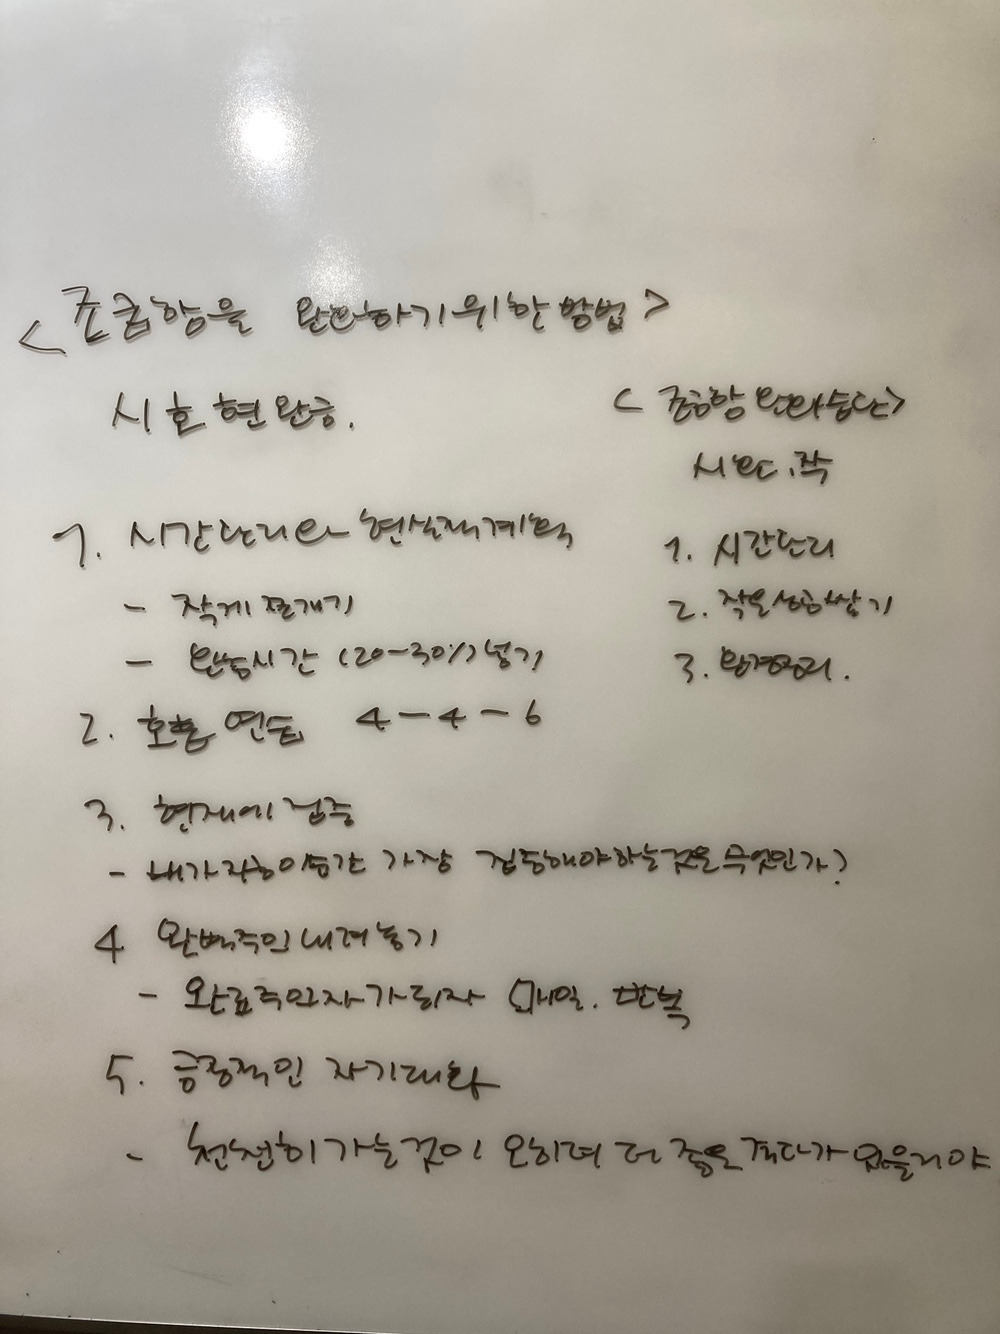 <조급함을 완화하기위한 방법>
시호현완긍.
1. 시간관리와 현실적계획
- 작게 쪼개기
- 완충시간 (20-30%) 넣기
2. 호흡 연습 4-4-6
3. 현재에 집중
- 내가 이순간 가장 집중해야하는것은 무엇인가?
4 완벽주의 내려놓기
- 완료주의자가되자 매일. 반복
5. 긍정적인 자기대화
- 천천히 가는것이 오히려 더 좋은 결과가 있을거야
<조급함 완화습관>
시작.
1. 시간관리
2. 작은성공쌓기
3. 환경정리.